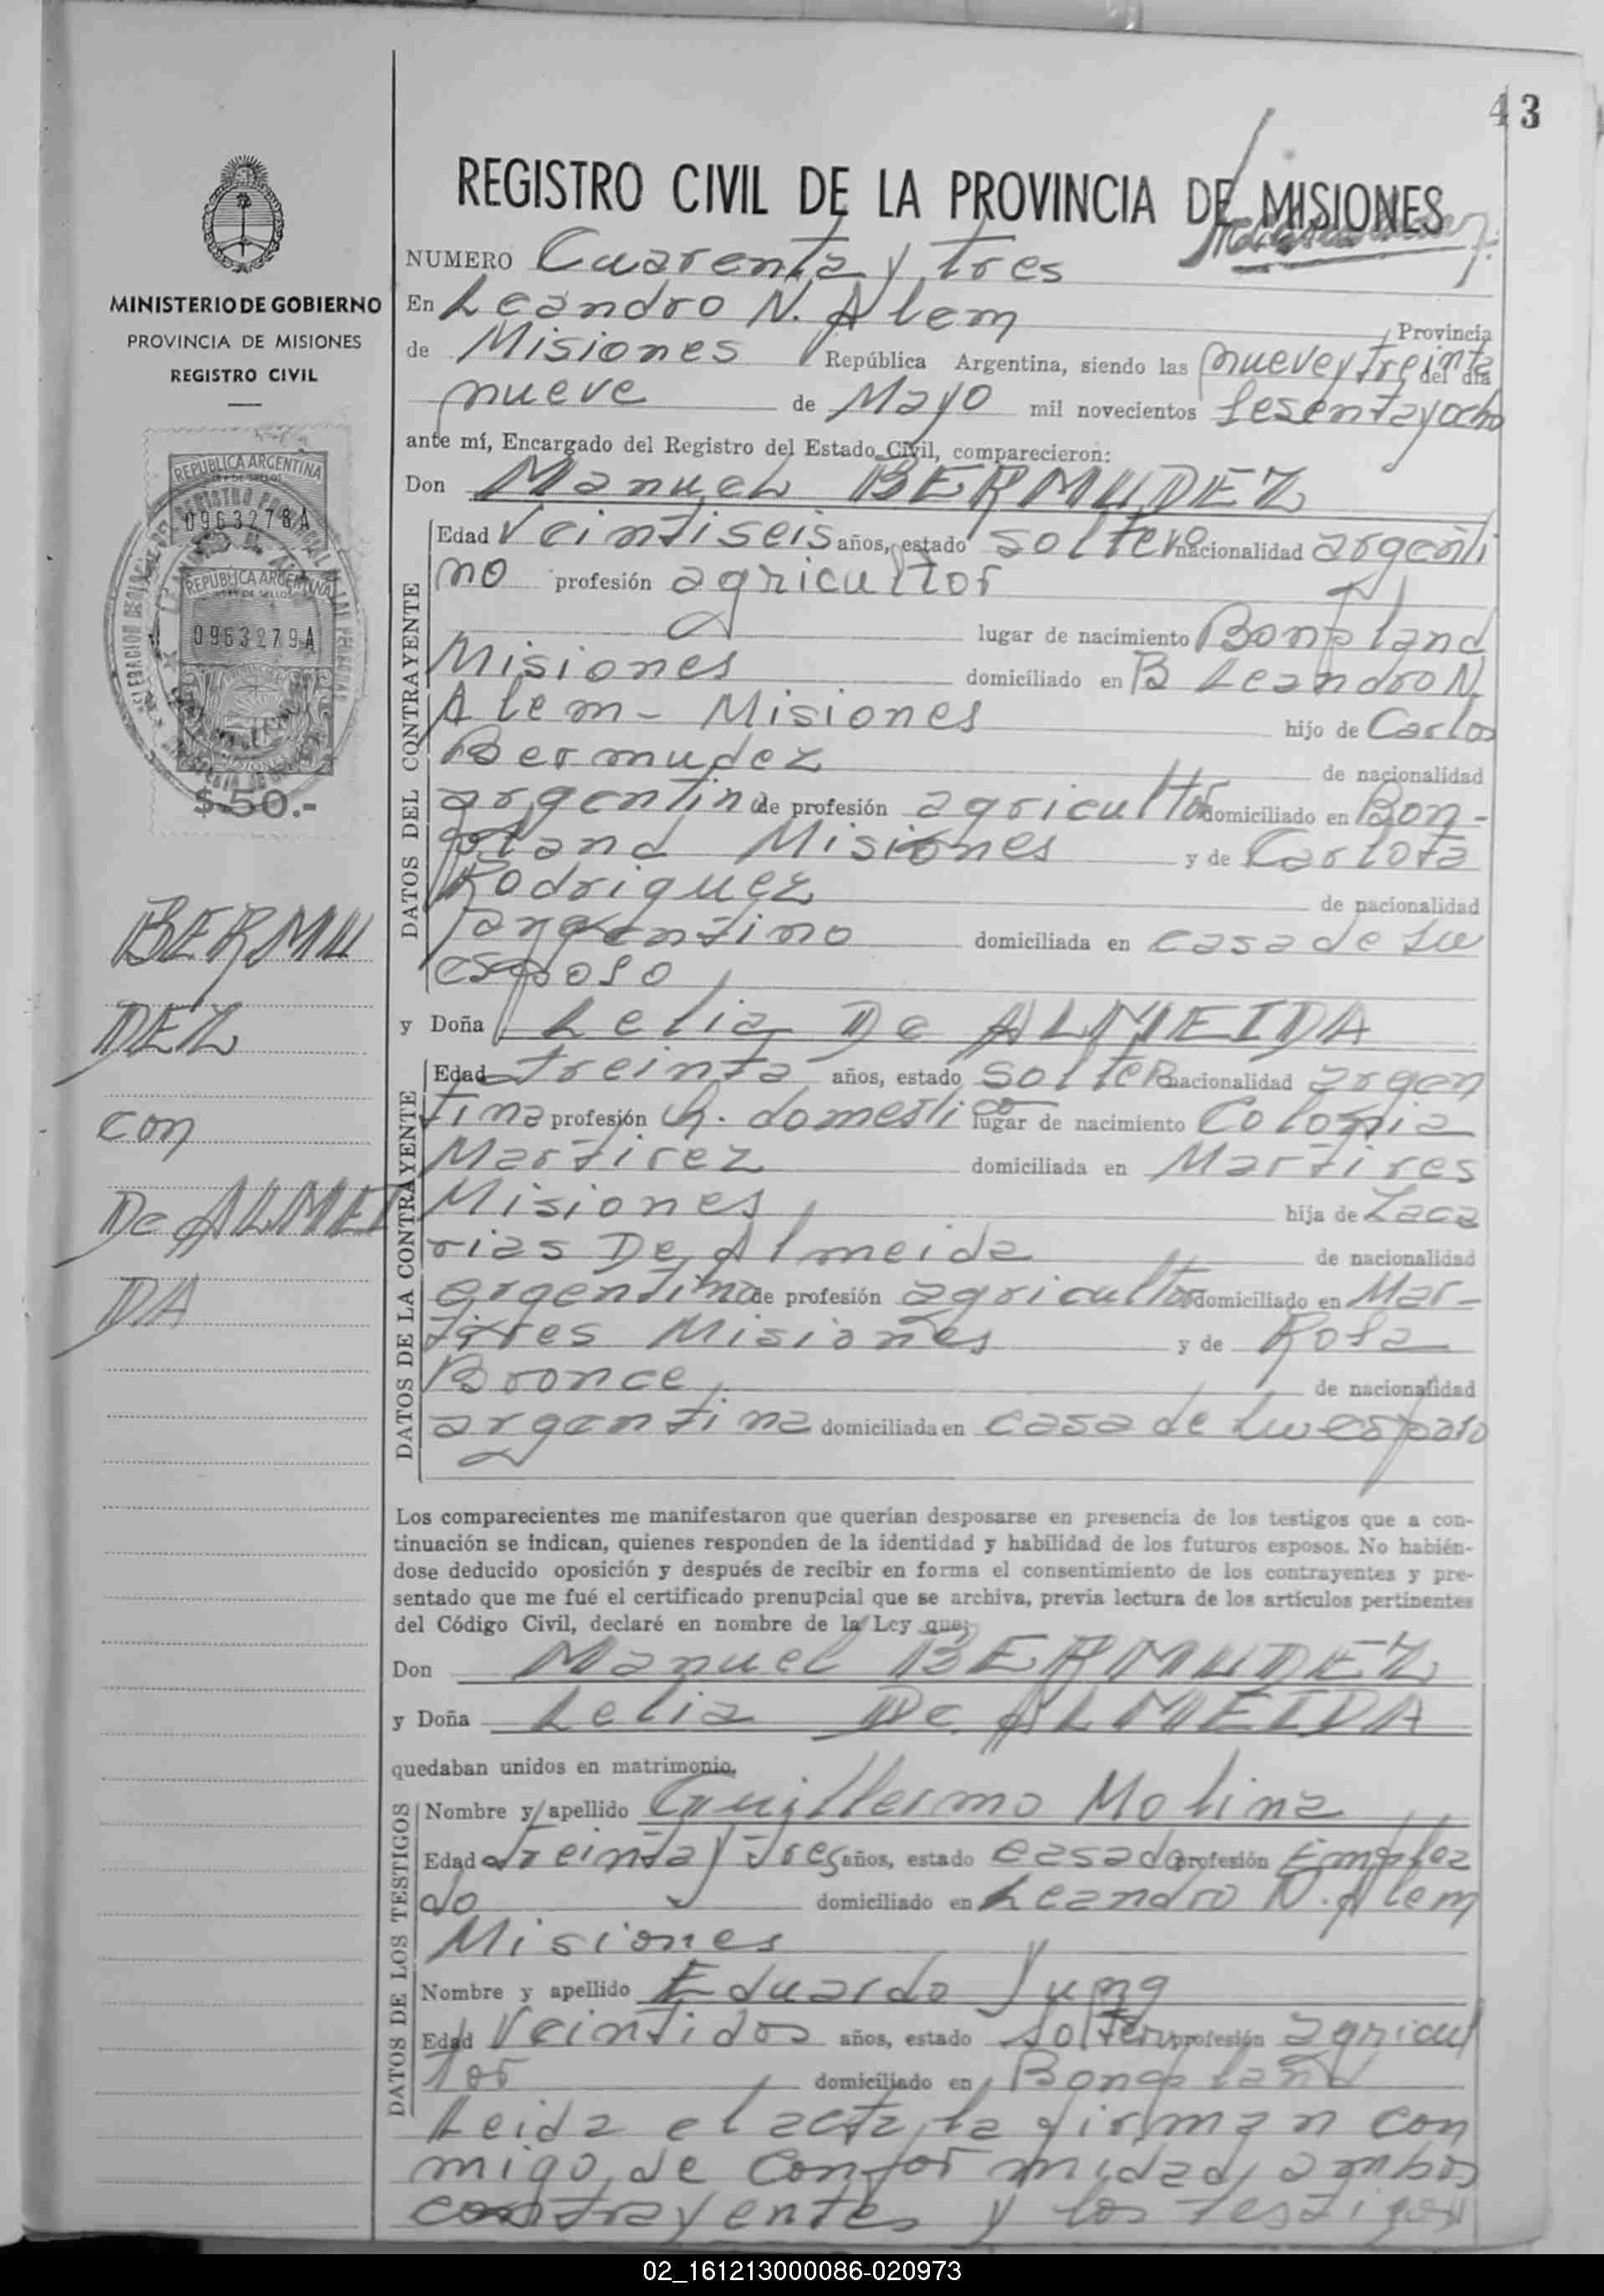 43
REGISTRO CIVIL DE LA PROVINCIA DE MISIONES
MINISTERIO DE GOBIERNO
PROVINCIA DE MISIONES
REGISTRO CIVIL
REPUBLICA ARGENTINA
LEY DE SELLOS
0963278A
REPUBLICA ARGENTINA
LEY DE SELLOS
0963279A
$.50.-
BERMU
DEZ
con
De ALMEI
DA
NUMERO Cuarenta y tres
En Leandro N. Alem Provincia
de Misiones República Argentina, siendo las nueve y treinta del día
nueve de Mayo mil novecientos sesentayocho
ante mí, Encargado del Registro del Estado Civil, comparecieron:
Don Manuel BERMUDEZ
DATOS DEL CONTRAYENTE
Edad Veintiseis años, estado soltero nacionalidad argenti
no profesión agricultor
lugar de nacimiento Bonpland
Misiones domiciliado en B Leandro N.
Alem - Misiones hijo de Carlos
Bermudez de nacionalidad
argentino de profesión agricultor domiciliado en Bon-
pland Misiones y de Carlota
Rodriguez de nacionalidad
argentino domiciliada en casa de su
esposo
y Doña Lelia De ALMEIDA
DATOS DE LA CONTRAYENTE
Edad treinta años, estado soltera nacionalidad argen
tina profesión q. domestico lugar de nacimiento Colonia
Martirez domiciliada en Martires
Misiones hija de Zaca
rias De Almeida de nacionalidad
argentina de profesión agricultor domiciliado en Mar-
tires Misiones y de Rosa
Bronce de nacionalidad
argentina domiciliada en casa de su esposo
Los comparecientes me manifestaron que querían desposarse en presencia de los testigos que a con-
tinuación se indican, quienes responden de la identidad y habilidad de los futuros esposos. No habién-
dose deducido oposición y después de recibir en forma el consentimiento de los contrayentes y pre-
sentado que me fué el certificado prenupcial que se archiva, previa lectura de los artículos pertinentes
del Código Civil, declaré en nombre de la Ley que:
Don Manuel BERMUDEZ
y Doña Lelia De ALMEIDA
quedaban unidos en matrimonio.
DATOS DE LOS TESTIGOS
Nombre y apellido Guillermo Molina
Edad treinta y tres años, estado casado profesión Emplea
do domiciliado en Leandro N. Alem
Misiones
Nombre y apellido Eduardo Jung
Edad Veintidos años, estado soltero profesión agricul
tor domiciliado en Bonpland
Leida el acta, la firman con
migo, de conformidad, ambos
contrayentes y los testigos
02_161213000086-020973